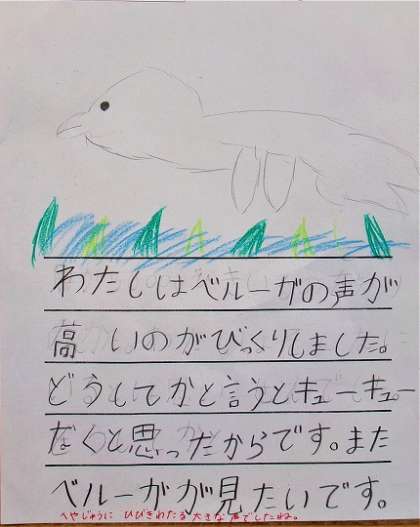 わたしはベルーガの声が
高いのがびっくりしました。
どうしてかと言うとキューキュー
だくと思ったからです。また
ベルーガが見たいです。
へやじゅうに ひびきわたる 大きな声でしたね。